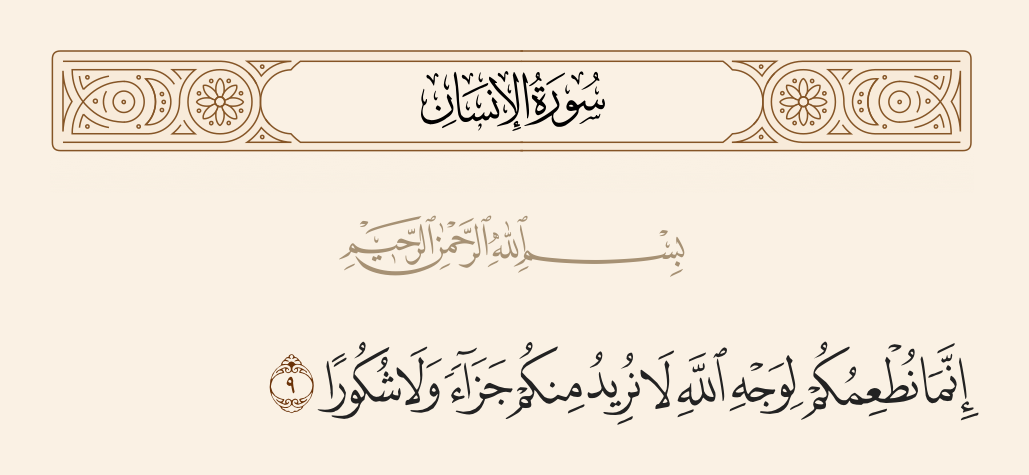 سُورَةُ الإِنسَانِ
بِسْمِ ٱللَّهِ ٱلرَّحْمَٰنِ ٱلرَّحِيمِ
إِنَّمَا نُطْعِمُكُمْ لِوَجْهِ ٱللَّهِ لَا نُرِيدُ مِنكُمْ جَزَآءً وَلَا شُكُورًا ٩